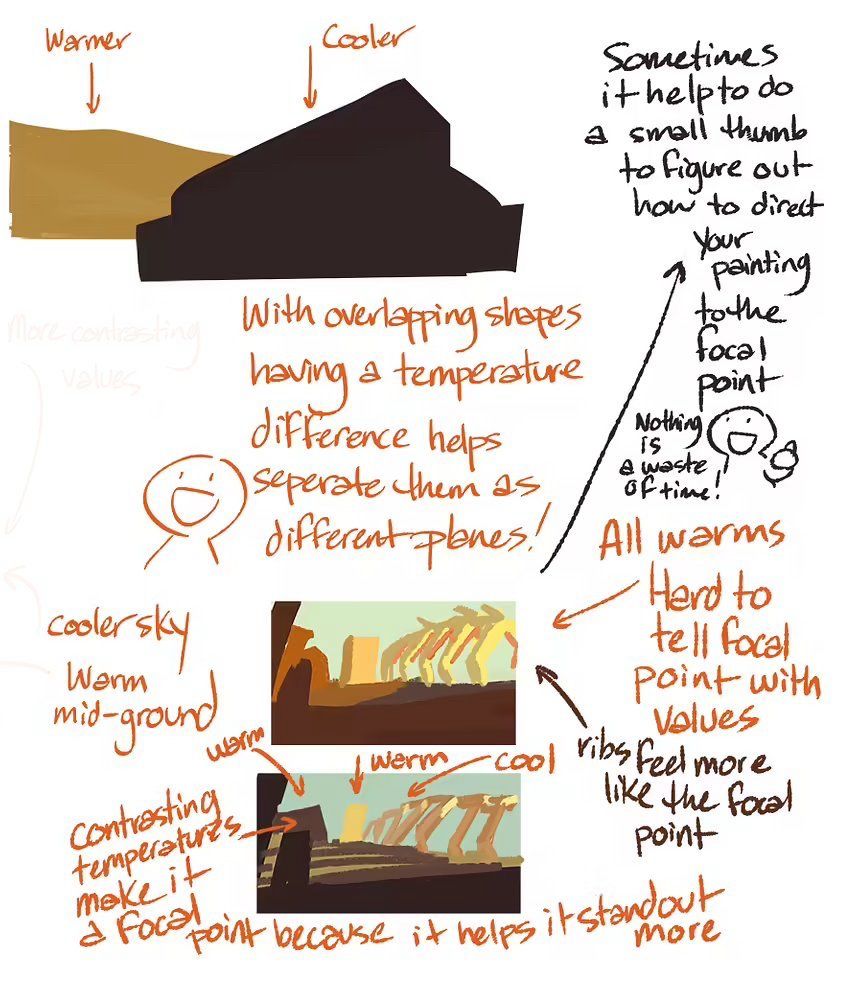 Warmer
Cooler
Sometimes
it help to do
a small thumb
to figure out
how to direct
your
painting
to the
focal
point
Nothing
is
a waste
of time!
More contrasting
values
With overlapping shapes
having a temperature
difference helps
seperate them as
different planes!
All warms
Hard to
tell focal
point with
values
cooler sky
Warm
mid-ground
ribs feel more
like the focal
point
warm
warm
cool
contrasting
temperatures
make it
a focal
point because it helps it standout
more